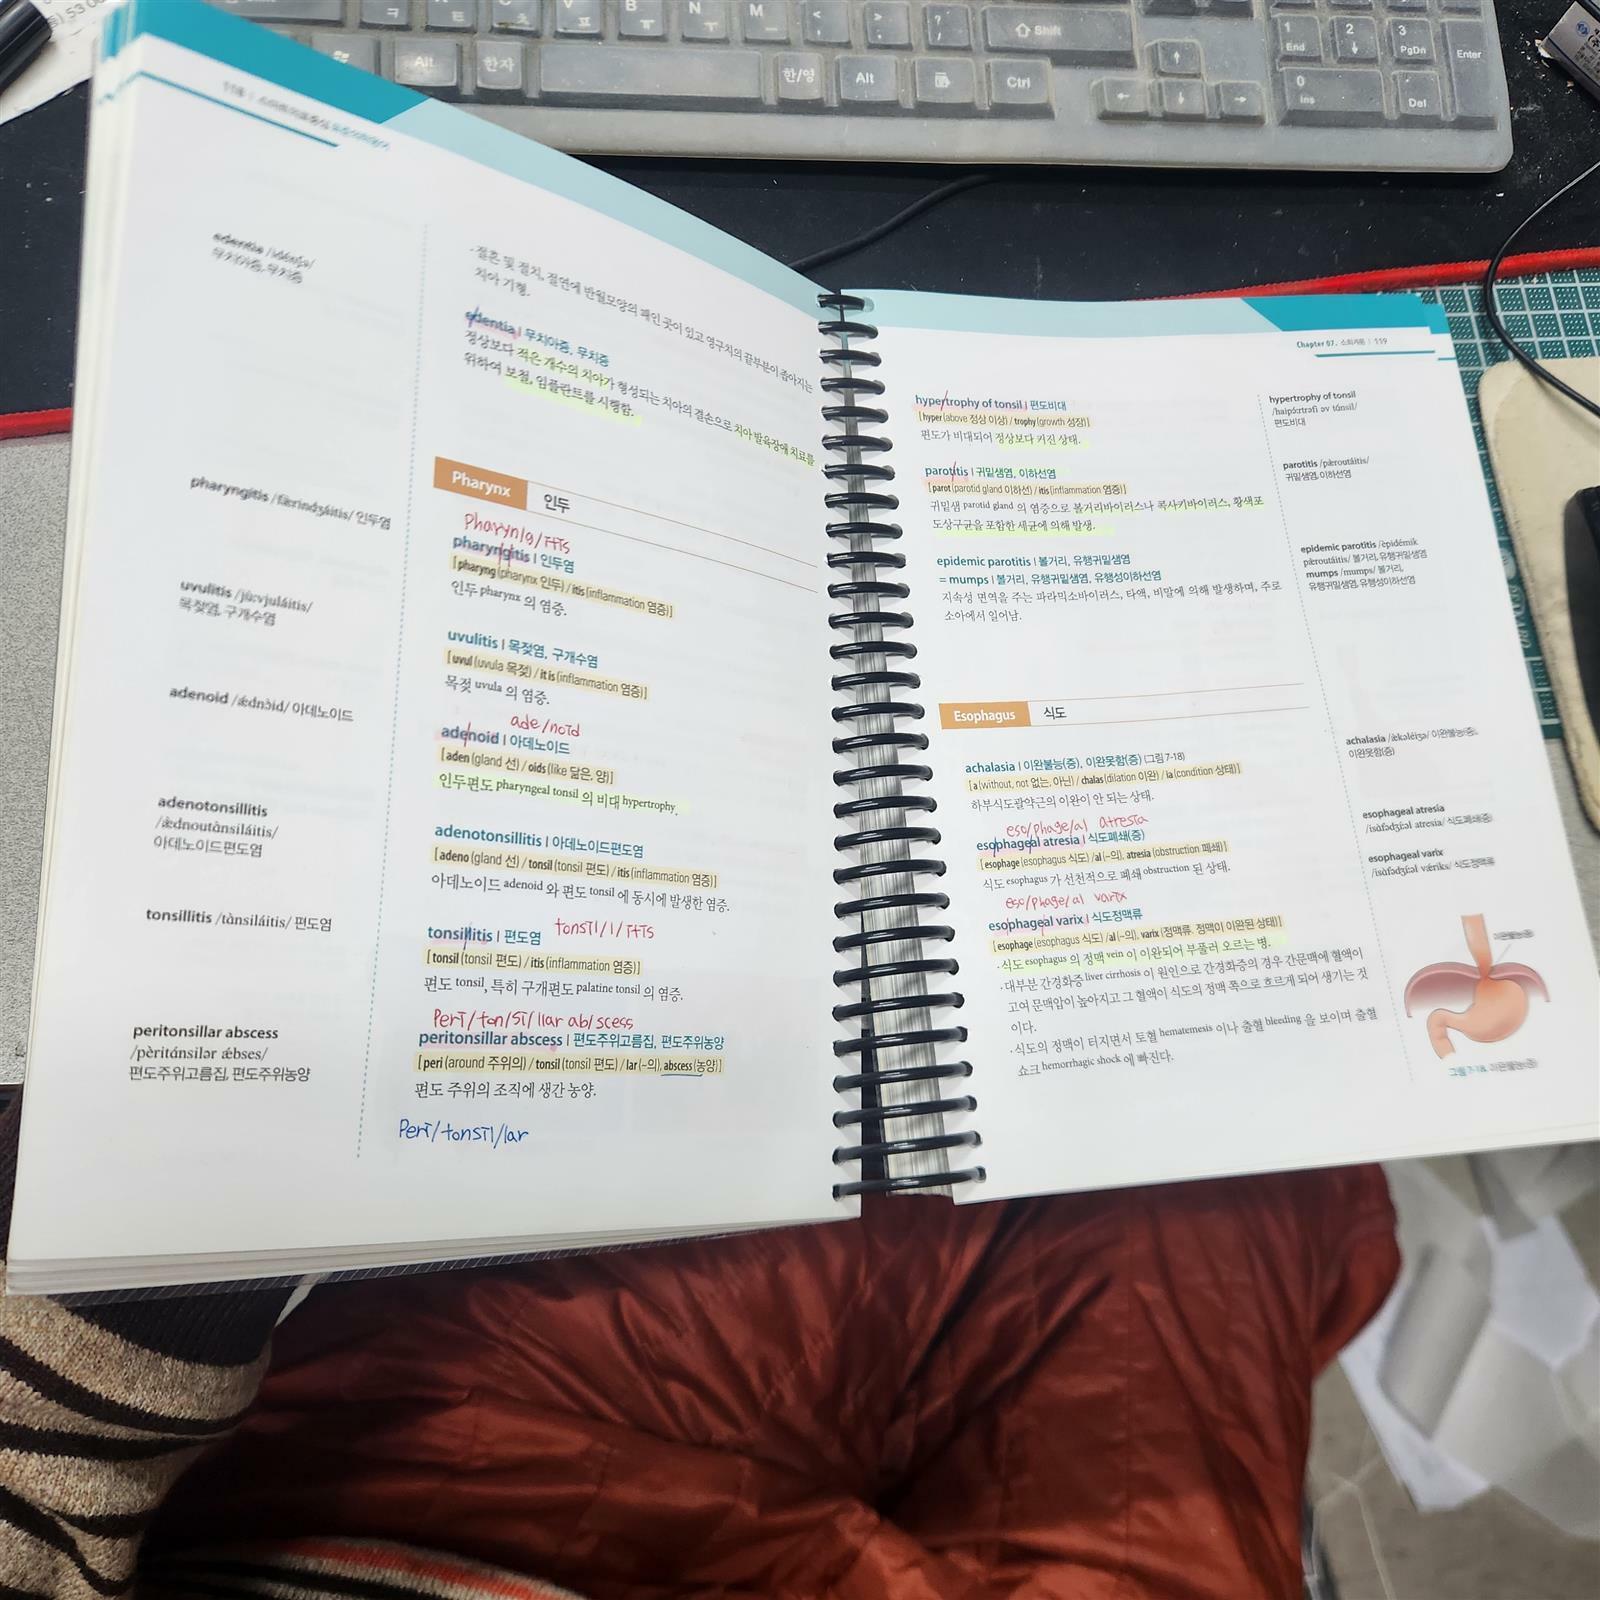 53 0
Alt
한자
V
ㅍ
B
ㅠ
N
ㅜ
M
ㅡ
<
,
>
.
?
/
Shift
한/영
Alt
Ctrl
1
End
2
3
PgDn
Enter
0
Ins
Del
118
edentia
무치아증, 무치증
pharyngitis /færindʒáitis/ 인두염
uvulitis /jùːvjuláitis/
목젖염, 구개수염
adenoid /ǽdnɔ̀id/ 아데노이드
adenotonsillitis
/ædnoutànsiláitis/
아데노이드편도염
tonsillitis /tànsiláitis/ 편도염
peritonsillar abscess
/pèritánsilər ǽbses/
편도주위고름집, 편도주위농양
· 절흔 및 절치, 절연에 반월모양의 패인 곳이 있고 영구치의 끝부분이 좁아지는
치아 기형.
edentia | 무치아증, 무치증
정상보다 적은 개수의 치아가 형성되는 치아의 결손으로 치아 발육장애 치료를
위하여 보철, 임플란트를 시행함.
Pharynx 인두
pharyn/g/itis
pharyngitis | 인두염
[pharyng(pharynx 인두) / itis(inflammation 염증)]
인두 pharynx 의 염증.
uvulitis | 목젖염, 구개수염
[uvul(uvula 목젖) / itis(inflammation 염증)]
목젖 uvula 의 염증.
ade/noid
adenoid | 아데노이드
[aden(gland 선) / oids(like 닮은, 양)]
인두편도 pharyngeal tonsil 의 비대 hypertrophy.
adenotonsillitis | 아데노이드편도염
[adeno(gland 선) / tonsil(tonsil 편도) / itis(inflammation 염증)]
아데노이드 adenoid 와 편도 tonsil 에 동시에 발생한 염증.
tonsillitis | 편도염 tonsil/l/itis
[tonsil(tonsil 편도) / itis(inflammation 염증)]
편도 tonsil, 특히 구개편도 palatine tonsil 의 염증.
Peri/ton/si/llar ab/scess
peritonsillar abscess | 편도주위고름집, 편도주위농양
[peri(around 주위의) / tonsil(tonsil 편도) / lar(~의), abscess(농양)]
편도 주위의 조직에 생간 농양.
Peri/tonsil/lar
Chapter 07. 소화계통 | 119
hypertrophy of tonsil | 편도비대
[hyper(above 정상 이상) / trophy(growth 성장)]
편도가 비대되어 정상보다 커진 상태.
parotitis | 귀밑샘염, 이하선염
[parot(parotid gland 이하선) / itis(inflammation 염증)]
귀밑샘 parotid gland 의 염증으로 볼거리바이러스나 콕사키바이러스, 황색포
도상구균을 포함한 세균에 의해 발생.
epidemic parotitis | 볼거리, 유행귀밑샘염
= mumps | 볼거리, 유행귀밑샘염, 유행성이하선염
지속성 면역을 주는 파라믹소바이러스, 타액, 비말에 의해 발생하며, 주로
소아에서 일어남.
Esophagus 식도
achalasia | 이완불능(증), 이완못함(증) (그림 7-18)
[a(without, not 없는, 아닌) / chalas(dilation 이완) / ia(condition 상태)]
하부식도괄약근의 이완이 안 되는 상태.
eso/phage/al atresia
esophageal atresia | 식도폐쇄(증)
[esophage(esophagus 식도) / al(~의), atresia(obstruction 폐쇄)]
식도 esophagus 가 선천적으로 폐쇄 obstruction 된 상태.
eso/phage/al varix
esophageal varix | 식도정맥류
[esophage(esophagus 식도) / al(~의), varix(정맥류, 정맥이 이완된 상태)]
· 식도 esophagus 의 정맥 vein 이 이완되어 부풀러 오르는 병.
· 대부분 간경화증 liver cirrhosis 이 원인으로 간경화증의 경우 간문맥에 혈액이
고여 문맥압이 높아지고 그 혈액이 식도의 정맥 쪽으로 흐르게 되어 생기는 것
이다.
· 식도의 정맥이 터지면서 토혈 hematemesis 이나 출혈 bleeding 을 보이며 출혈
쇼크 hemorrhagic shock 에 빠진다.
hypertrophy of tonsil
/haipə́ːrtrəfi əv tánsil/
편도비대
parotitis /pæroutáitis/
귀밑샘염, 이하선염
epidemic parotitis /èpidémik
pæroutáitis/ 볼거리, 유행귀밑샘염
mumps /mʌmps/ 볼거리,
유행귀밑샘염, 유행성이하선염
achalasia /ǽkəléiʒə/ 이완불능(증),
이완못함(증)
esophageal atresia
/isàfədʒíːəl atresia/ 식도폐쇄(증)
esophageal varix
/isàfədʒíːəl vǽriks/ 식도정맥류
이완불능(증)
그림 7-18. 이완불능(증)